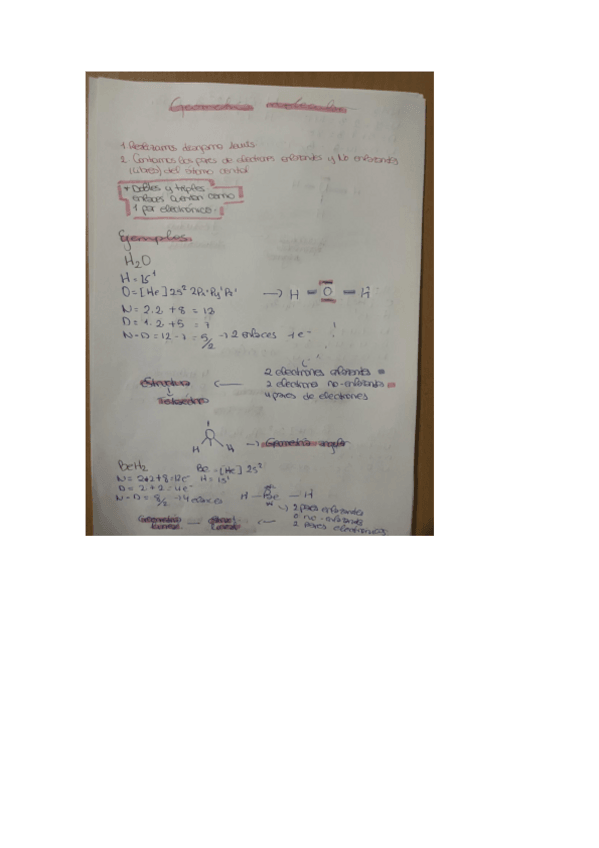 Geometría molecular
1. Realizamos diagrama Lewis
2. Contamos los pares de electrones enlazantes y No enlazantes
(Libres) del átomo central
* Dobles y triples
enlaces cuentan como
1 par electrónico.
Ejemplos
H2O
H = 1s1
O = [He] 2s2 2Px2 Py1 Pz1
→ H = O = H
N = 2.2 + 8 = 12
D = 1.2 + 5 = 7
N - D = 12 - 7 = 5/2 → 2 enlaces
2 electrones enlazantes
2 electrones no-enlazantes
4 pares de electrones
Estructura
Tetraédrica
H H → Geometría angular
BeH2 Be = [He] 2s2
N = 2·2 + 8 = 12e- H = 1s1
D = 2 + 2 = 4e-
N - D = 8/2 → 4 enlaces
H — Be — H
→ 2 pares enlazantes
0 no-enlazantes
2 pares electrónicos
Geometría